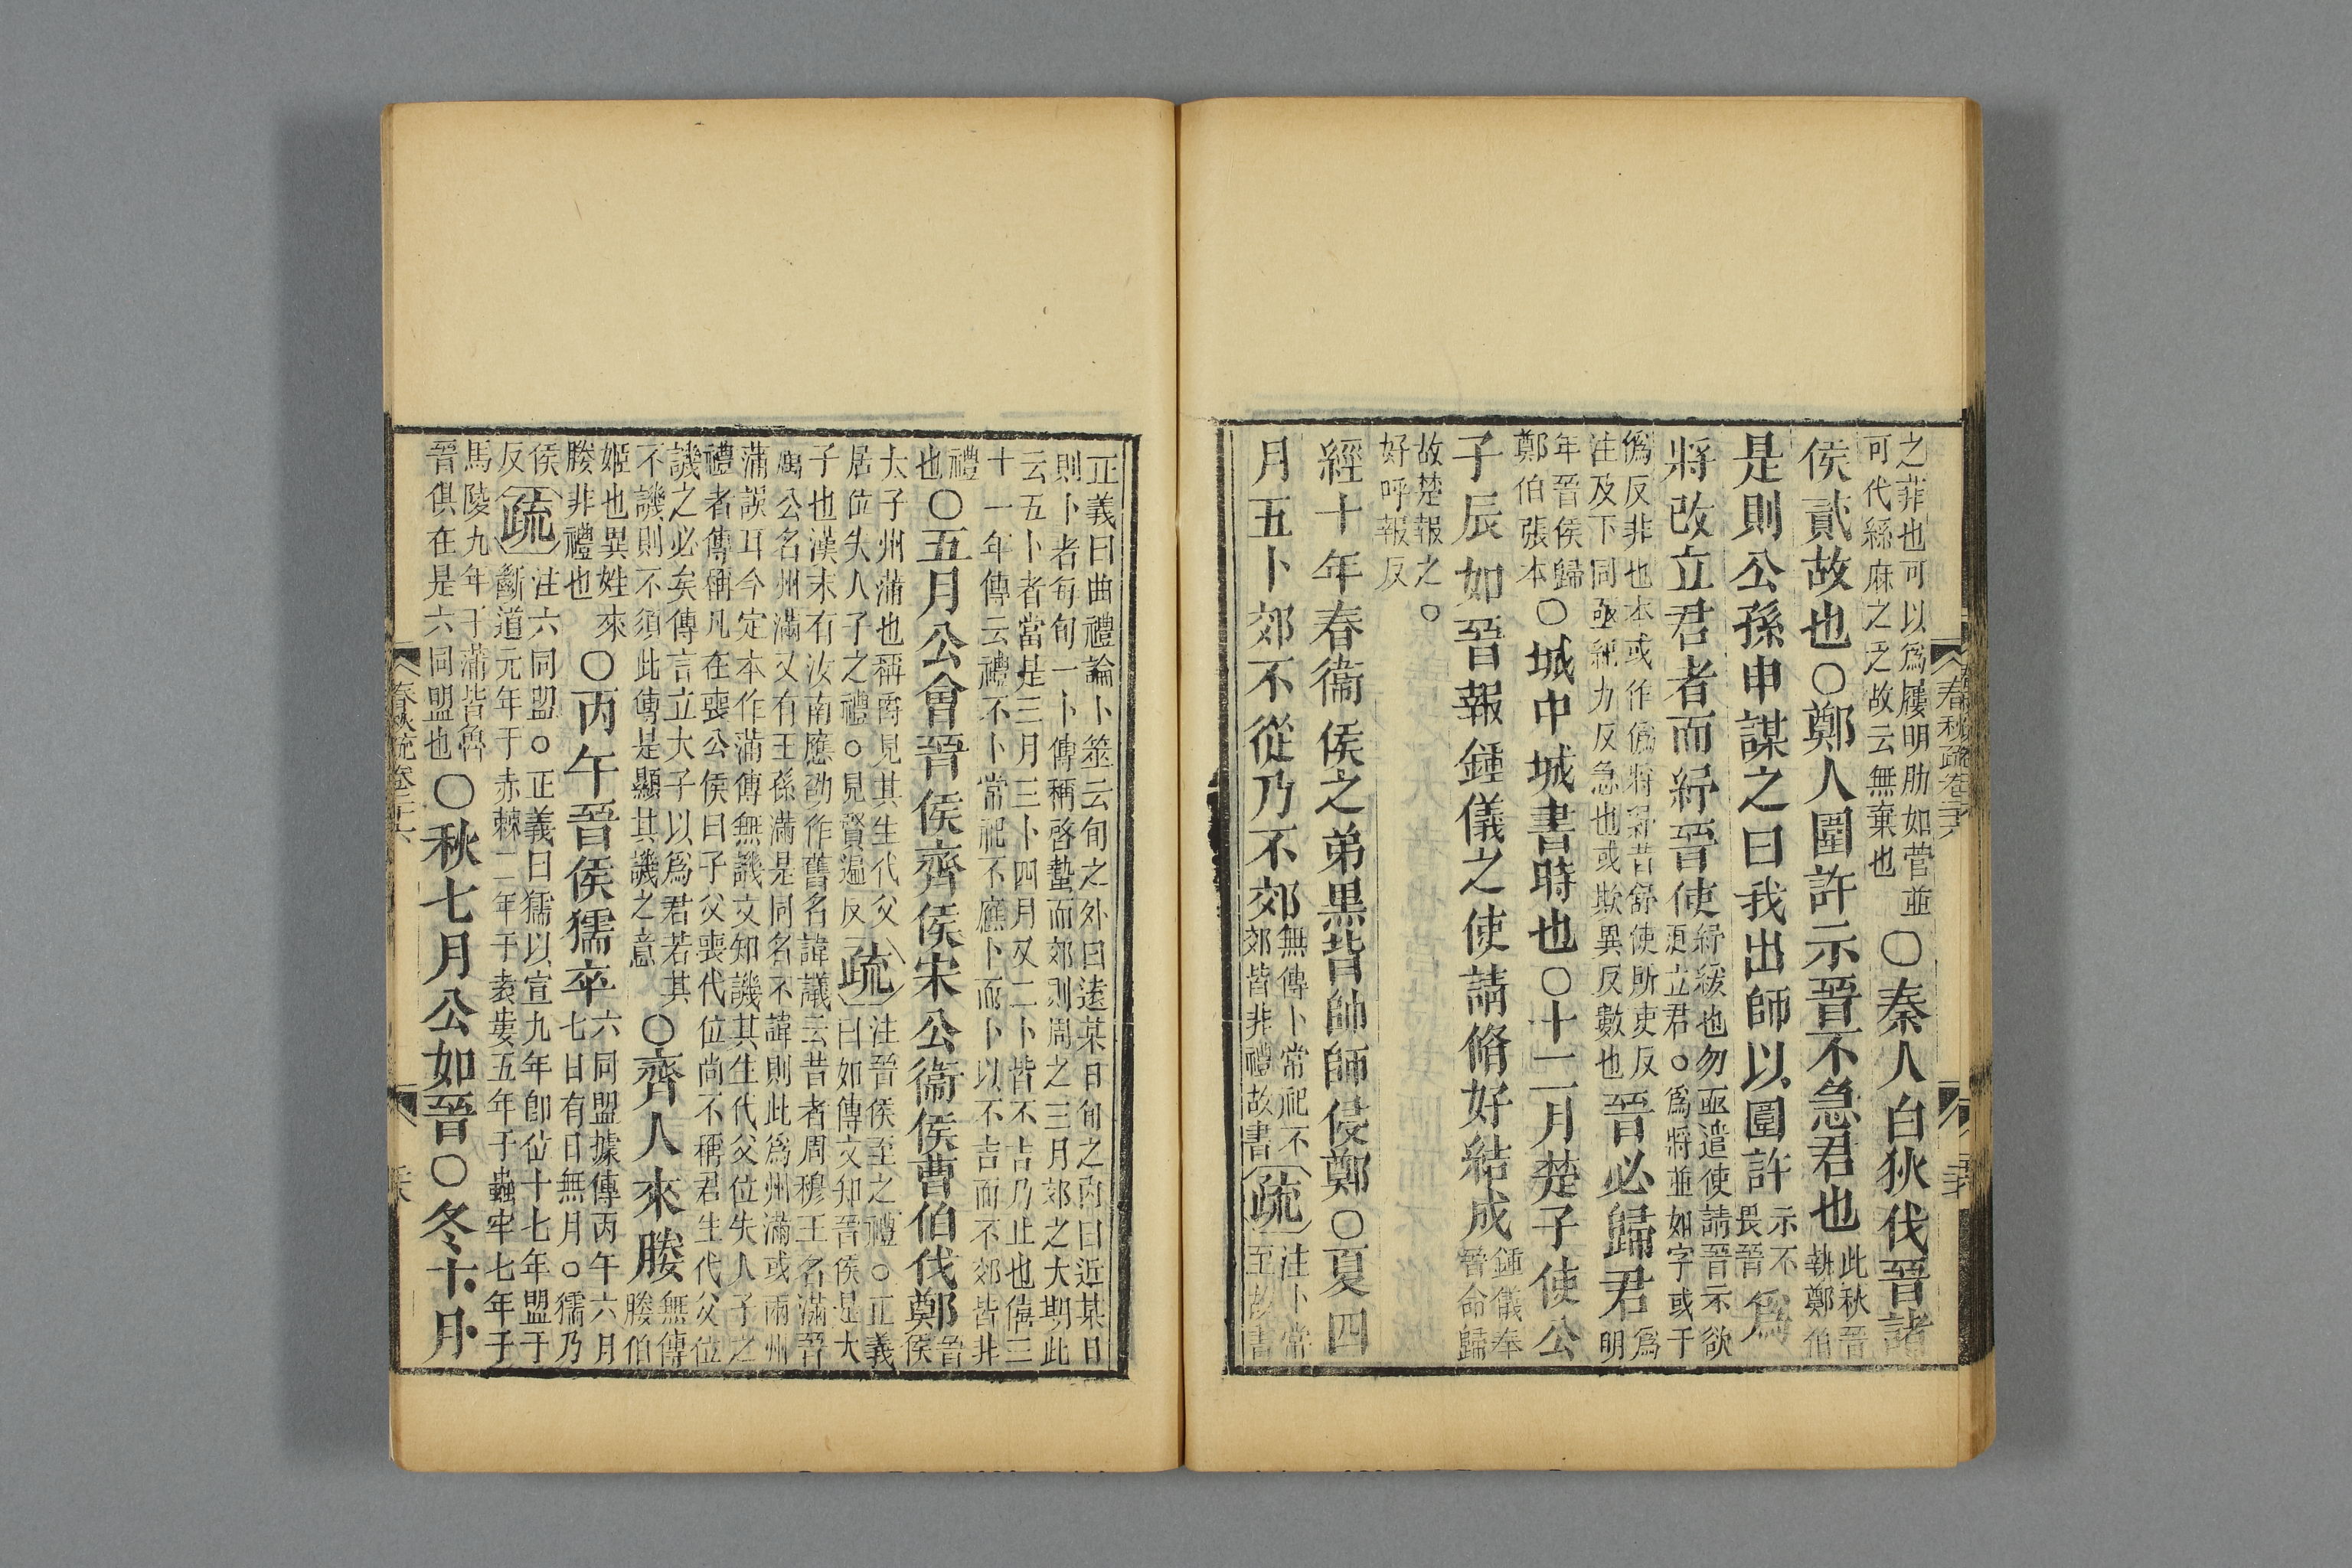 春秋疏卷二十六
之菲也可以爲屨明肋如菅並可代絲麻之乏故云無棄也○秦人白狄伐晉諸
侯貳故也○鄭人圍許示晉不急君也此秋晉執鄭伯
是則公孫申謀之曰我出師以圍許示不畏晉爲
將改立君者而紓晉使紓緩也勿亟遣使請晉示欲更立君○爲將並如字或于
僞反非也本或作僞將紓音舒使所吏反注及下同亟紀力反急也或欺異反數也晉必歸君爲明
年晉侯歸鄭伯張本○城中城書時也○十二月楚子使公
子辰如晉報鍾儀之使請脩好結成鍾儀奉晉命歸
故楚報之○好呼報反
經十年春衞侯之弟黑背帥師侵鄭○夏四
月五卜郊不從乃不郊無傳卜常祀不郊皆非禮故書疏注卜常至故書
正義曰曲禮論卜筮云旬之外曰遠某日旬之內曰近某日
則卜者每旬一卜傳稱啓蟄而郊則周之三月郊之大期此
云五卜者當是三月三卜四月又二卜皆不吉乃止也僖三
十一年傳云禮不卜常祀不應卜而卜以不吉而不郊皆非
禮也○五月公會晉侯齊侯宋公衞侯曹伯伐鄭晉侯
太子州蒲也稱爵見其生代父居位失人子之禮○見賢遍反疏注晉侯至之禮○正義曰如傳文知晉侯是大
子也漢末有汝南應劭作舊名諱議云昔者周穆王名滿晉
厲公名州滿又有王孫滿是同名不諱則此爲州滿或兩州
蒲誤耳今定本作蒲傳無譏文知譏其生代父位失人子之
禮者傳稱凡在喪公侯曰子父喪代位尚不稱君生代父位
譏之必矣傳言立大子以爲君若其不譏則不須此傳是顯其譏之意○齊人來媵無傳媵伯
姬也異姓來媵非禮也○丙午晉侯獳卒六同盟據傳丙午六月七日有日無月○獳乃
侯反疏注六同盟○正義曰獳以宣九年卽位十七年盟于斷道元年于赤棘二年于袁婁五年于蟲牢七年于
馬陵九年于蒲皆魯晉俱在是六同盟也○秋七月公如晉○冬十月
春秋疏卷二十六